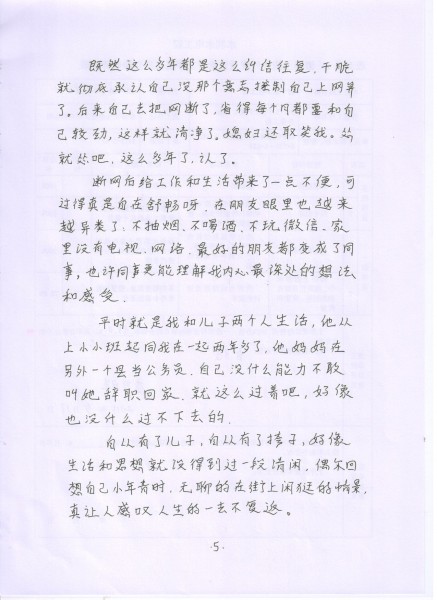 既然这么多年都是这么纠结往复、干脆
就彻底承认自己没那个意志控制自己上网算
了。后来自己去把网断了，省得每个月都要和自
己较劲，这样就清净了。媳妇还取笑我。怂
就怂吧，这么多年了，认了。
断网后给工作和生活带来了一点不便，可
过得真是自在舒畅呀。在朋友眼里也越来
越异类了：不抽烟、不喝酒、不玩微信、家
里没有电视、网络。最好的朋友都变成了同
事，也许同事更能理解我内心最深处的想法
和感受。
平时就是我和儿子两个人生活，他从
上小小班起同我在一起两年多了，他妈妈在
另外一个县当公务员。自己没什么能力不敢
叫她辞职回家。就这么过着吧，好像
也没什么过不下去的。
自从有了儿子，自从有了孩子，好像
生活和思想就没得到过一段清闲。偶尔回
想自己小年青时、无聊的在街上闲逛的情景，
真让人感叹人生的一去不复返。
·5·